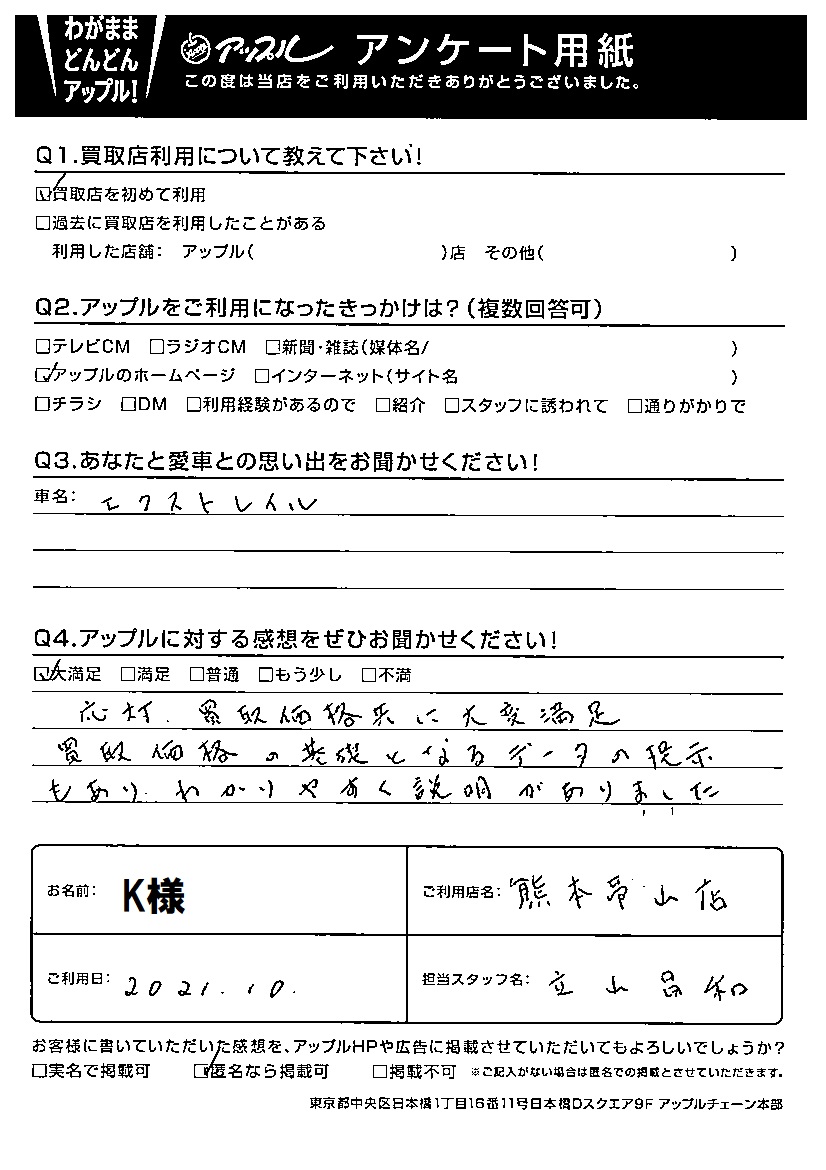 わがまま
どんどん
アップル!
アップル アンケート用紙
この度は当店をご利用いただきありがとうございました。
Q1.買取店利用について教えて下さい!
☑買取店を初めて利用
□過去に買取店を利用したことがある
利用した店舗: アップル( )店 その他( )
Q2.アップルをご利用になったきっかけは?(複数回答可)
□テレビCM □ラジオCM □新聞・雑誌(媒体名/ )
☑アップルのホームページ □インターネット(サイト名 )
□チラシ □DM □利用経験があるので □紹介 □スタッフに誘われて □通りがかりで
Q3.あなたと愛車との思い出をお聞かせください!
車名: エクストレイル
Q4.アップルに対する感想をぜひお聞かせください!
☑大満足 □満足 □普通 □もう少し □不満
応対、買取価格共に大変満足
買取価格の基礎となるデータの提示
もあり、わかりやすく説明がありました
お名前: K様
ご利用店名: 熊本帯山店
ご利用日: 2021.10.
担当スタッフ名: 立山昌和
お客様に書いていただいた感想を、アップルHPや広告に掲載させていただいてもよろしいでしょうか?
□実名で掲載可 ☑匿名なら掲載可 □掲載不可 ※ご記入がない場合は匿名での掲載とさせていただきます。
東京都中央区日本橋1丁目16番11号日本橋Dスクエア9F アップルチェーン本部